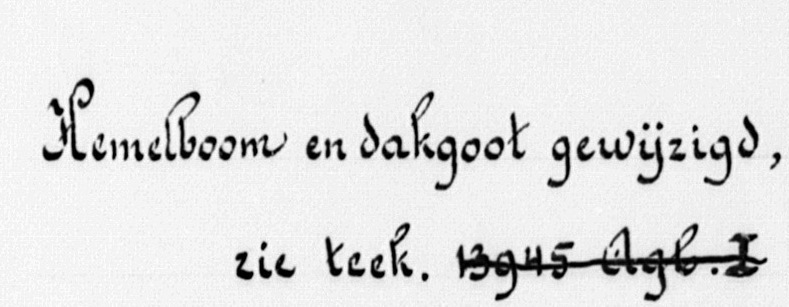 Hemelboom en dakgoot gewijzigd,
zie teek. 13945 Agb. I